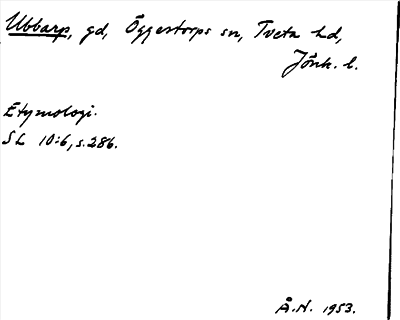 Ubbarp, gd, Öggestorps sn, Tveta hd,
Jönk. l.
Etymologi.
SL 10:6, s. 286.
Å.H. 1953.